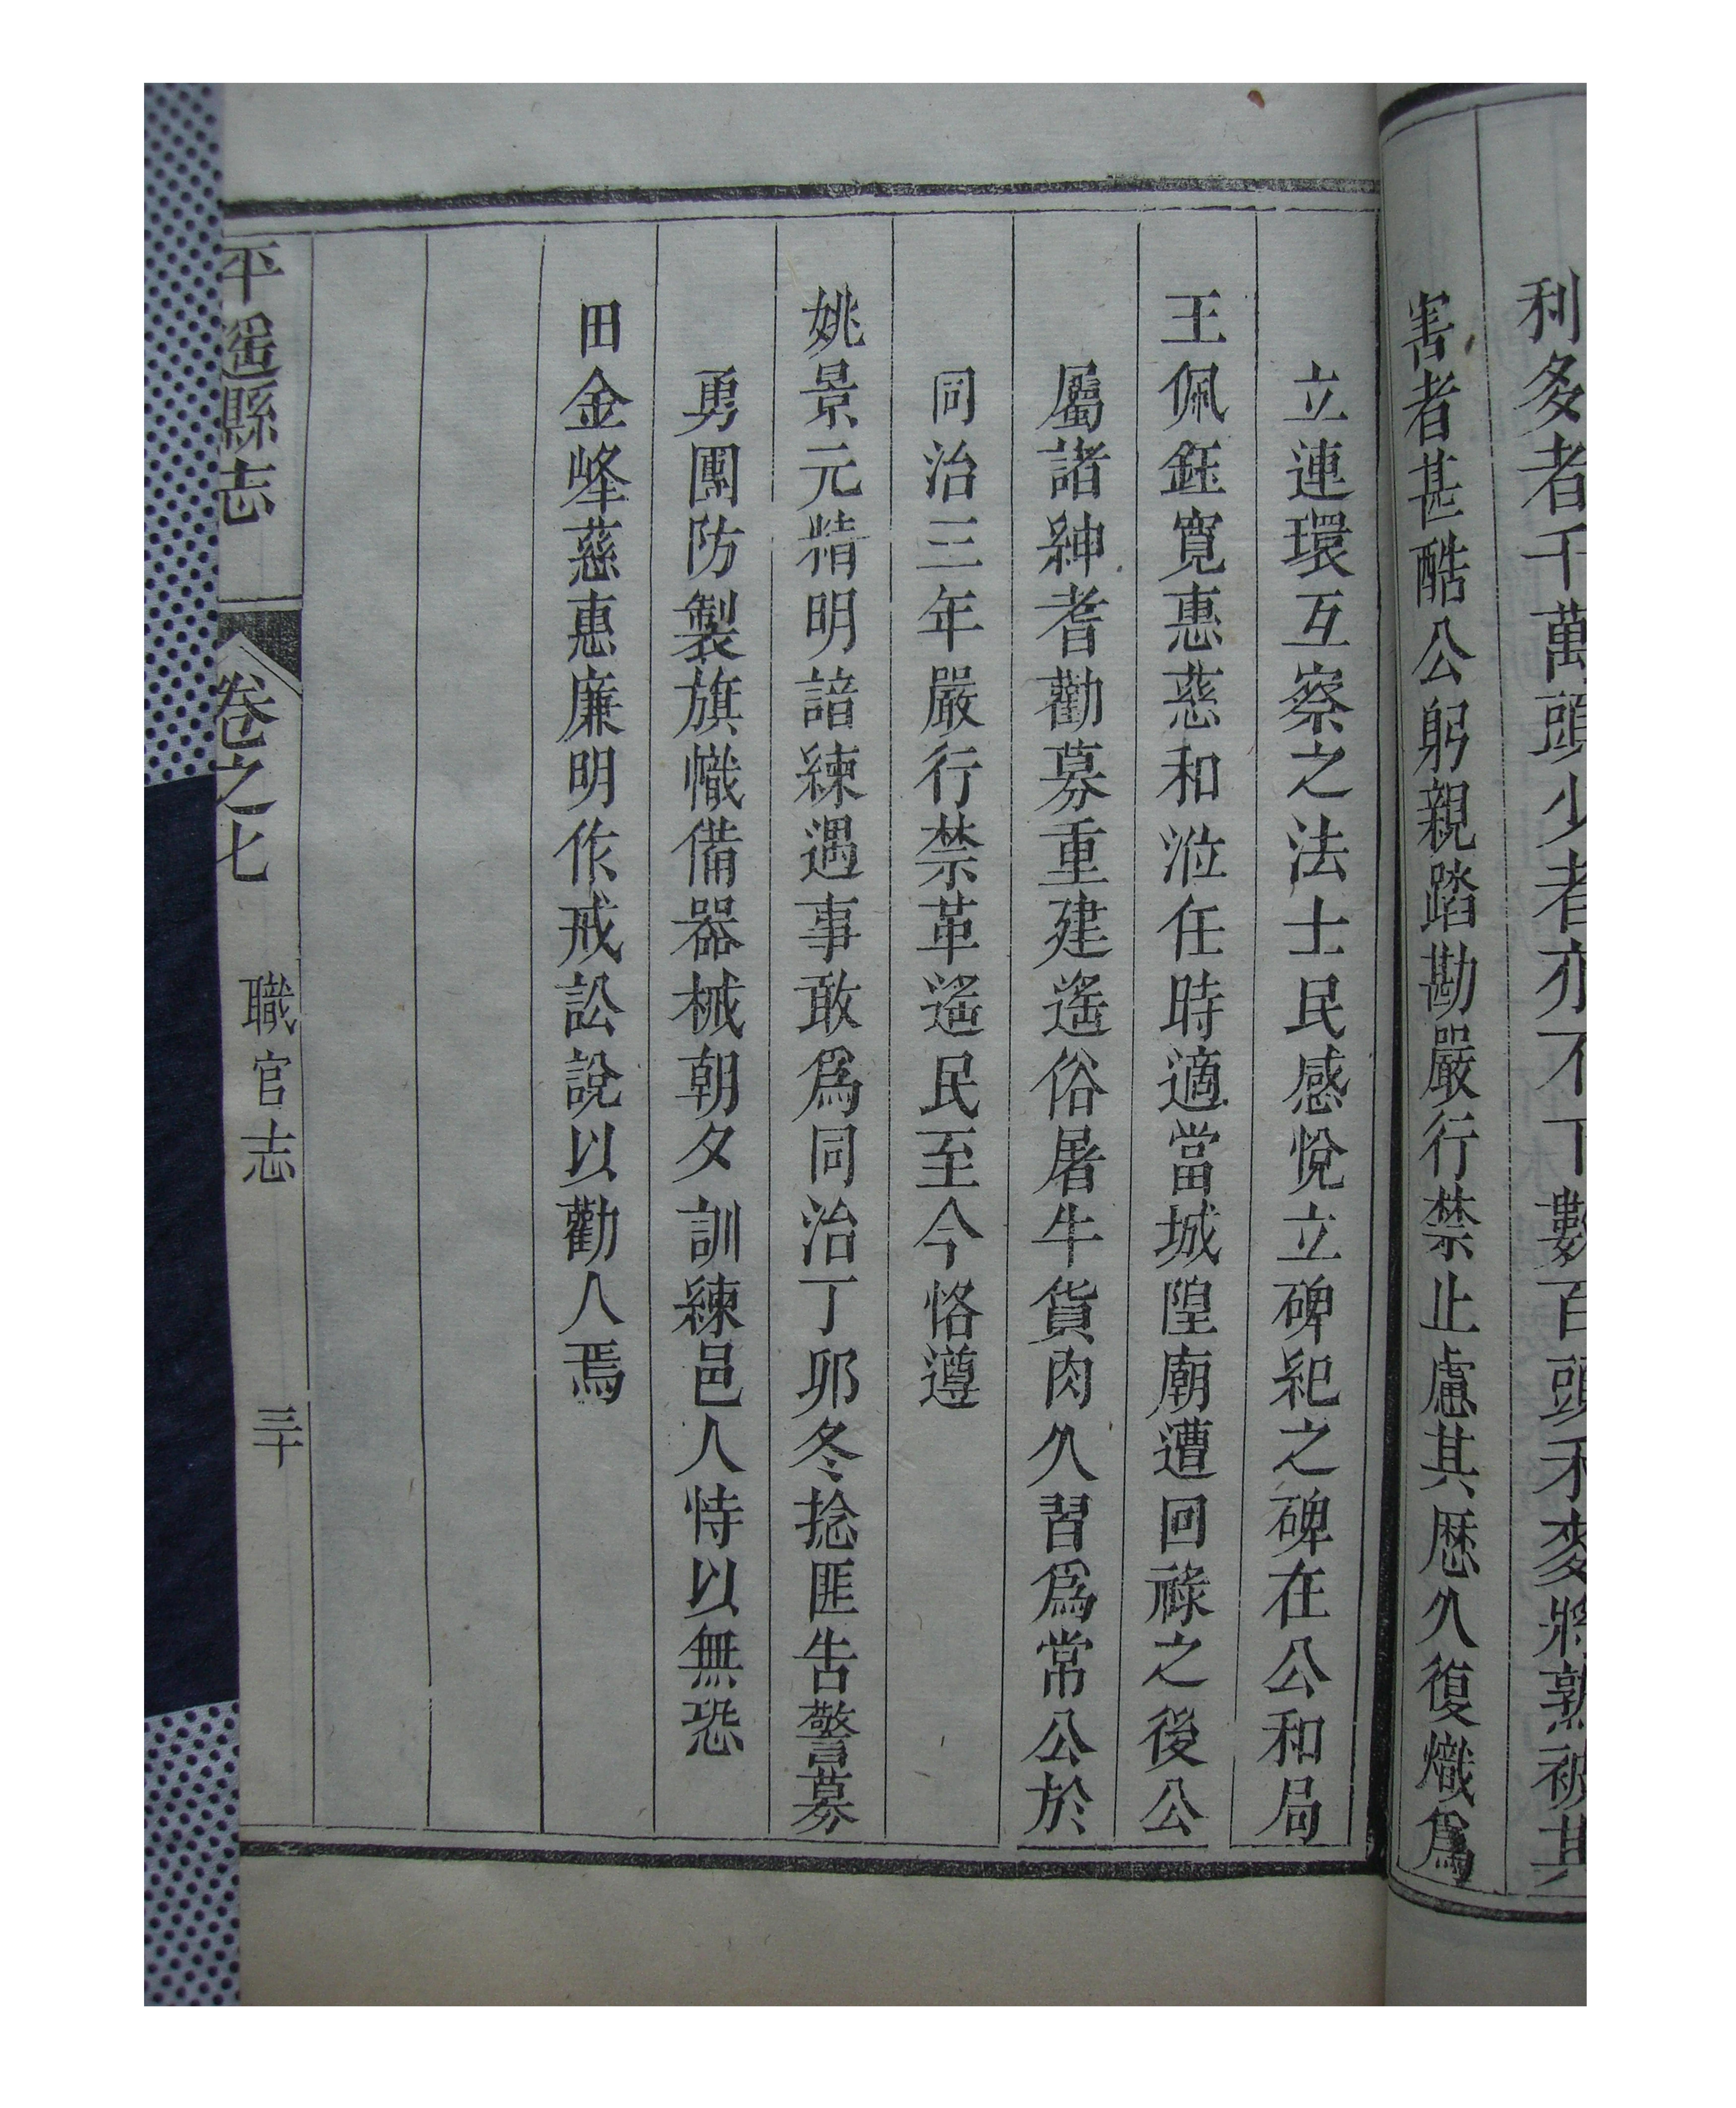 利多者千萬頭少者亦不下數百頭禾麥將熟被其
害者甚酷公躬親踏勘嚴行禁止慮其歷久復熾爲
立連環互察之法士民感悅立碑紀之碑在公和局
王佩鈺寬惠慈和涖任時適當城隍廟遭回祿之後公
屬諸紳耆勸募重建遙俗屠牛貨肉久習爲常公於
同治三年嚴行禁革遙民至今恪遵
姚景元精明諳練遇事敢爲同治丁卯冬捻匪告警募
勇團防製旗幟備器械朝夕訓練邑人恃以無恐
田金峰慈惠廉明作戒訟說以勸人焉
平遥縣志 卷之七 職官志 三十